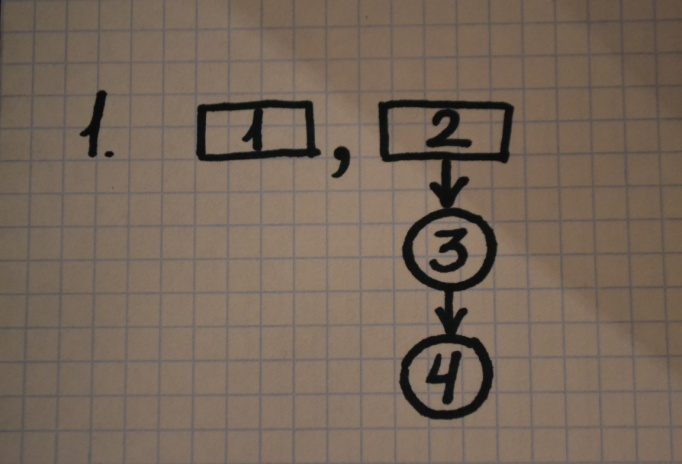 1. 1, 2
3
4